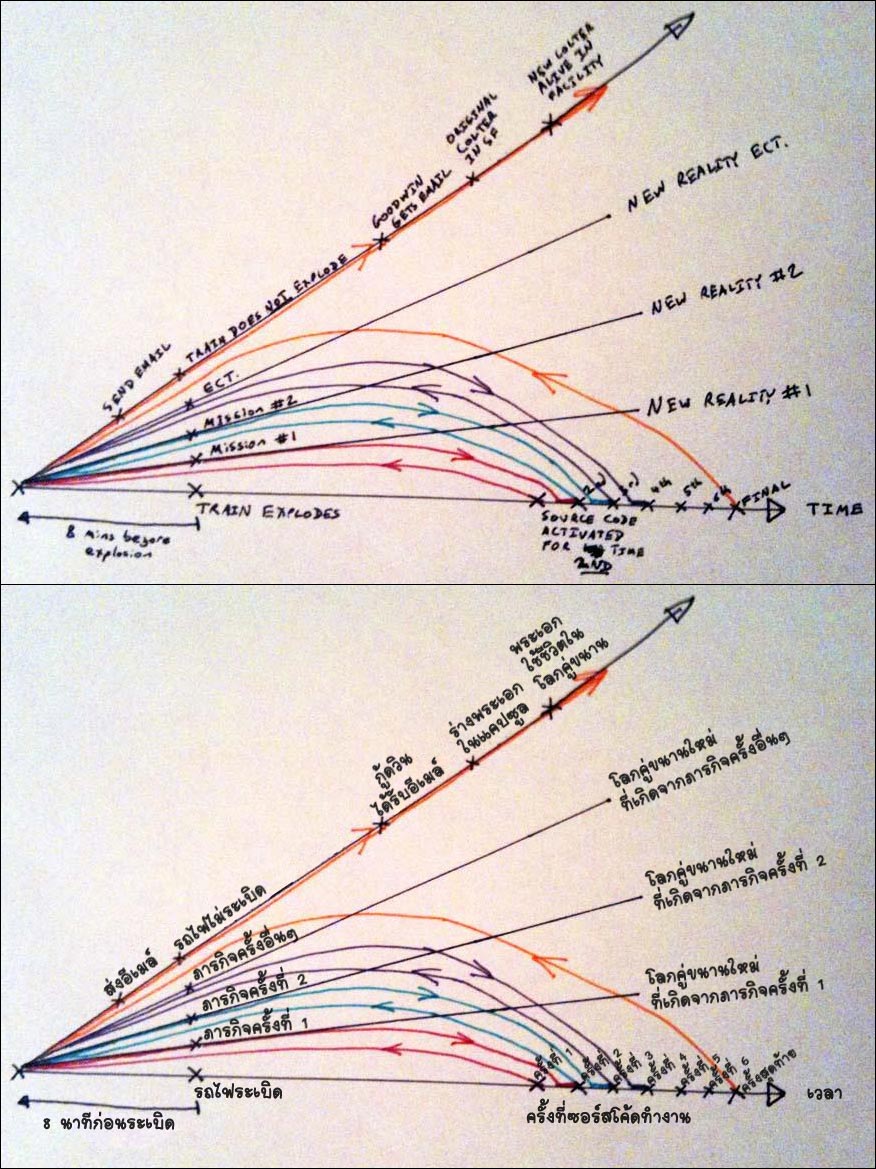 NEW COLTER
ALIVE IN
FACILITY
ORIGINAL
COLTER
IN SF
GOODWIN
GETS EMAIL
NEW REALITY ECT.
TRAIN DOES NOT EXPLODE
SEND EMAIL
NEW REALITY #2
ECT.
MISSION #2
NEW REALITY #1
MISSION #1
2ND
3RD
4th
5th
6th
FINAL
TIME
TRAIN EXPLODES
SOURCE CODE
ACTIVATED
FOR TIME
2ND
8 mins before
explosion
พระเอก
ใช้ชีวิตใน
โลกคู่ขนาน
ร่างพระเอก
ในแคปซูล
กู้ดวิน
ได้รับอีเมล์
โลกคู่ขนานใหม่
ที่เกิดจากภารกิจครั้งอื่นๆ
รถไฟไม่ระเบิด
ส่งอีเมล์
โลกคู่ขนานใหม่
ที่เกิดจากภารกิจครั้งที่ 2
ภารกิจครั้งอื่นๆ
ภารกิจครั้งที่ 2
โลกคู่ขนานใหม่
ที่เกิดจากภารกิจครั้งที่ 1
ภารกิจครั้งที่ 1
ครั้งที่ 1
ครั้งที่ 2
ครั้งที่ 3
ครั้งที่ 4
ครั้งที่ 5
ครั้งที่ 6
ครั้งสุดท้าย
เวลา
รถไฟระเบิด
ครั้งที่ซอร์สโค้ดทำงาน
8 นาทีก่อนระเบิด